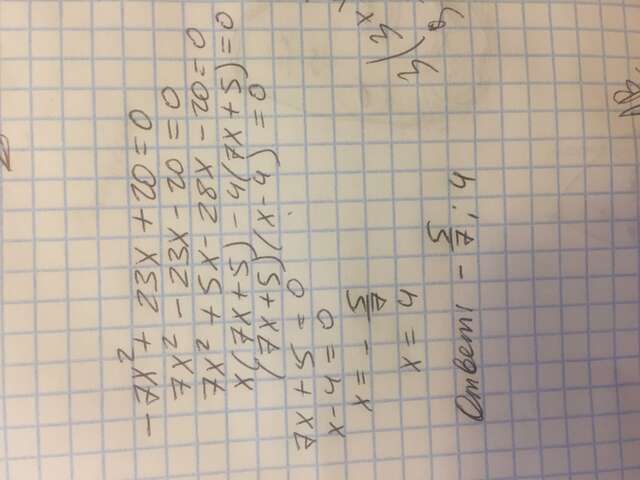 -7x² + 23x + 20 = 0
7x² - 23x - 20 = 0
7x² + 5x - 28x - 20 = 0
x(7x + 5) - 4(7x + 5) = 0
(7x + 5)(x - 4) = 0
7x + 5 = 0
x - 4 = 0
x = - 5/7
x = 4
Ответ: - 5/7; 4